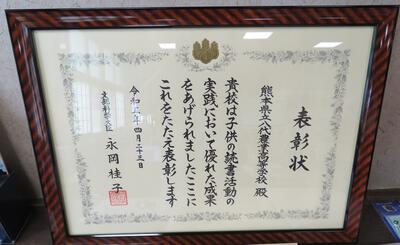 表彰状
熊本県立八代農業高等学校 殿
貴校は子供の読書活動の
実践において優れた成果
をあげられましたここに
これをたたえ表彰します
令和五年四月二十三日
文部科学大臣 永岡桂子